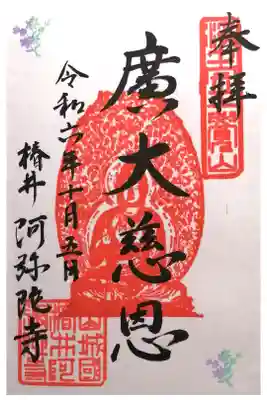 奉拝
廣大慈恩
令和六年十月五日
椿井 阿弥陀寺